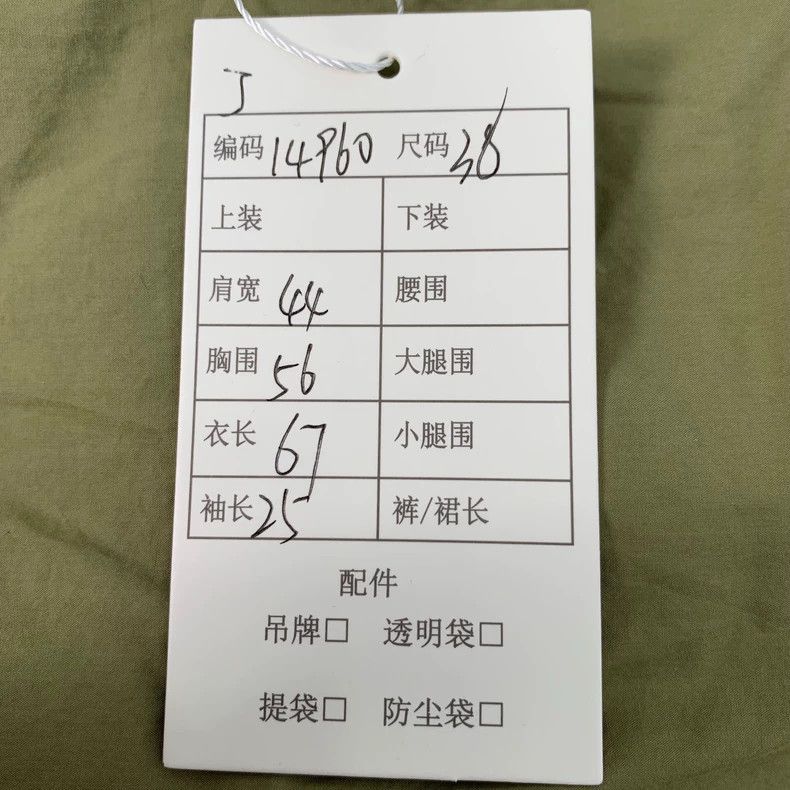 J
编码 14960 尺码 38
上装 下装
肩宽 44 腰围
胸围 56 大腿围
衣长 67 小腿围
袖长 25 裤/裙长
配件
吊牌□ 透明袋□
提袋□ 防尘袋□